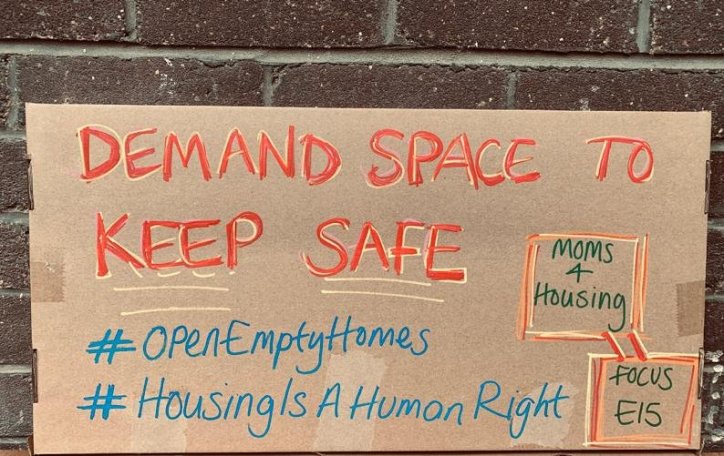 DEMAND SPACE TO
KEEP SAFE
MOMS
4
Housing
#OPEnEmptyHomes
#HousingIs A Human Right
FOCUS
E15